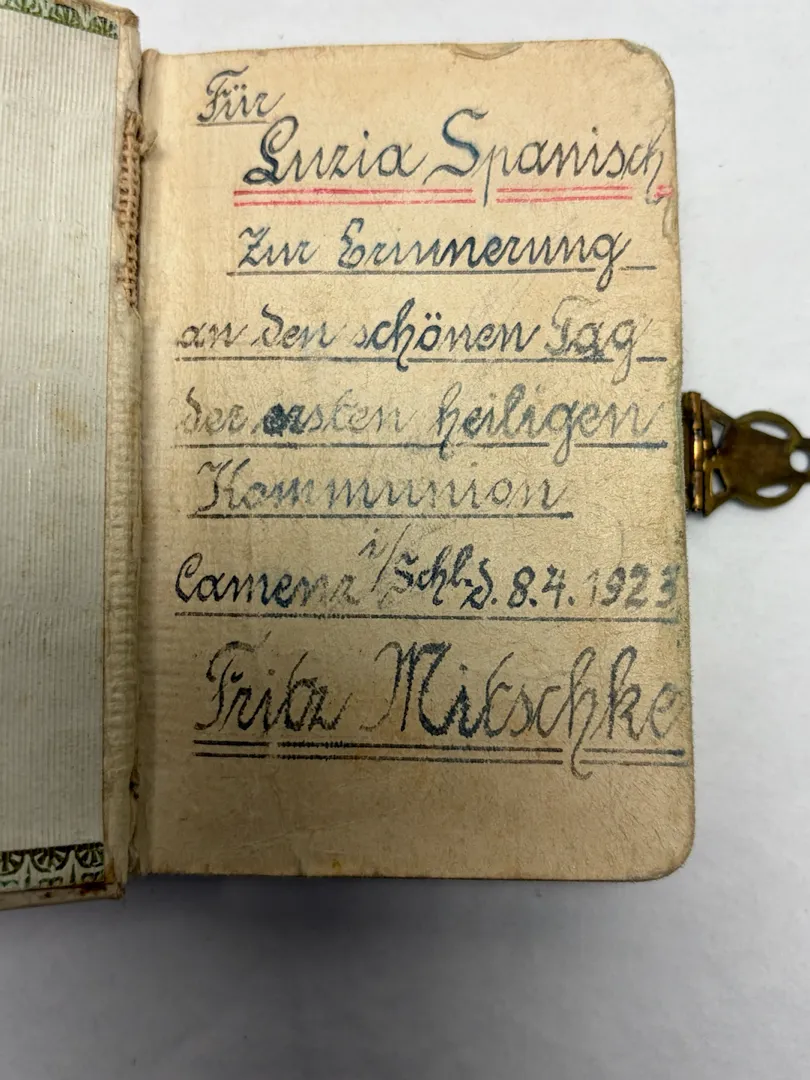 Für
Luzia Spanisch
Zur Erinnerung
an den schönen Tag
der ersten heiligen
Kommunion
Camenz i/Schl. d. 8.4.1923
Fritz Mitschke